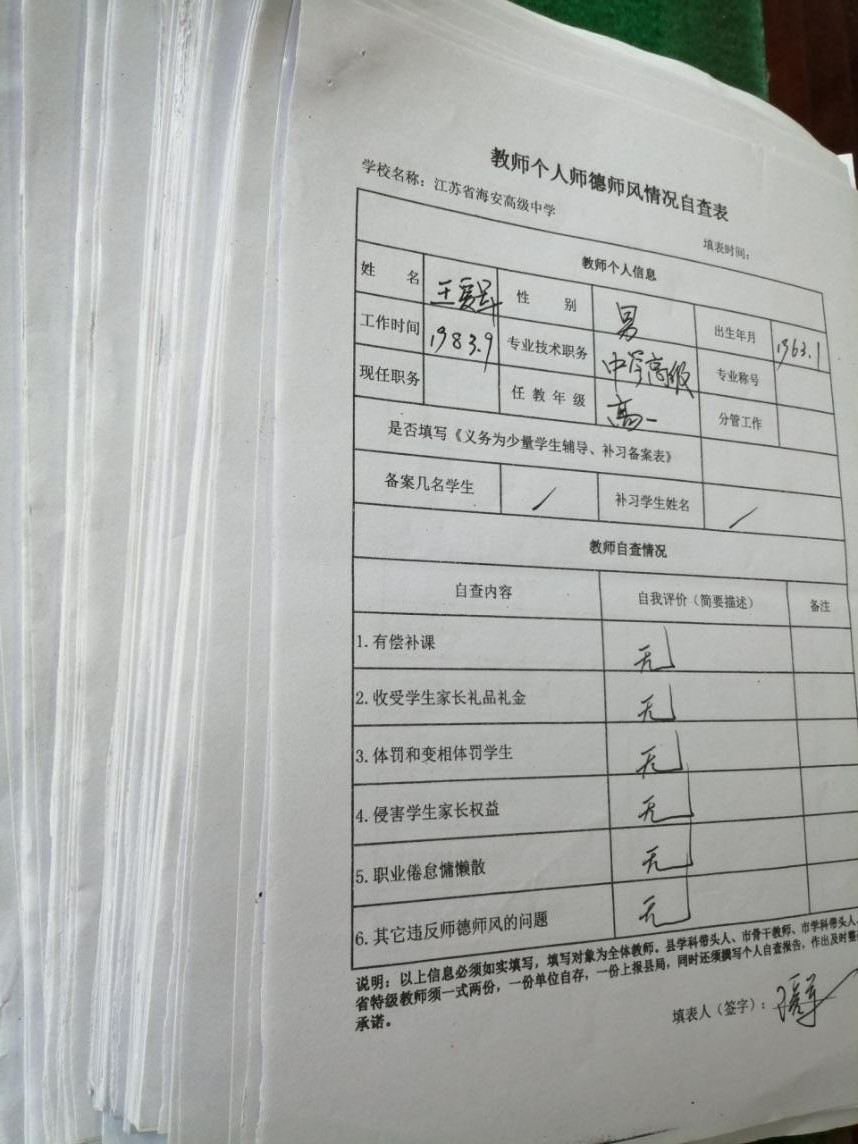 教师个人师德师风情况自查表
学校名称：江苏省海安高级中学
填表时间：
教师个人信息
姓 名 王 性 别 男 出生年月 1963.1
工作时间 1983.9 专业技术职务 中学高级 专业称号
现任职务 任教年级 高一 分管工作
是否填写《义务为少量学生辅导、补习备案表》
备案几名学生 / 补习学生姓名 /
教师自查情况
自查内容 自我评价（简要描述） 备注
1.有偿补课 无
2.收受学生家长礼品礼金 无
3.体罚和变相体罚学生 无
4.侵害学生家长权益 无
5.职业倦怠慵懒散 无
6.其它违反师德师风的问题 无
说明：以上信息必须如实填写，填写对象为全体教师。县学科带头人、市骨干教师、市学科带头人、
省特级教师须一式两份，一份单位自存，一份上报县局，同时还须撰写个人自查报告，作出及时整
承诺。
填表人（签字）：